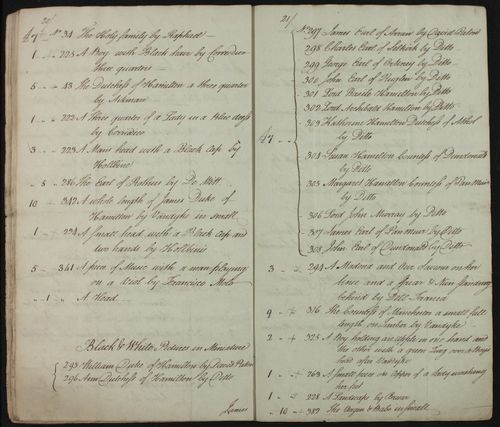 20/
£7 " " No 34 The Holy family by Raphael
1 " " 225 A Boy with Black hair by Corredior
three quarters
5 " " 43 The Dutchess of Hamilton a three quarter
by Aikman
1 " " 222 A Three quarter of a Lady in a blue dress
by Corriedior
3 " " 223 A Mans head with a Black Cap by
Holbine
" 5 " 286 The Earl of Rothus by De Witt
10 " " 342 A whole length of James Duke of
Hamilton by Vandyke in small
1 " " 224 A small head with a Black Cap and
two hands by Holbine
5 " " 341 A piece of Music with a man playing
on a Viol by Francisco Mola
" 1 " A Head
Black & White Pictures in Miniature
295 William Duke of Hamilton by David Paton
296 Ann Dutchess of Hamilton by Ditto
James
21/
No 297 James Earl of Arran by David Paton
298 Charles Earl of Selkirk by Ditto
299 George Earl of Orkney by Ditto
300 John Earl of Ruglen by Ditto
301 Lord Basile Hamilton by Ditto
302 Lord Archibald Hamilton by Ditto
303 Katherine Hamilton Dutchess of Athol
by Ditto
£7 " "
304 Susan Hamilton Countess of Dundonald
by Ditto
305 Margaret Hamilton Countess of Panmure
by Ditto
306 Lord John Murray by Ditto
307 James Earl of Panmure by Ditto
308 John Earl of Dundonald by Ditto
3 " " 294 A Madona and Our Saviour on her
knee and a friar & Nun standing
behind by
9 " " 316 The Countess of Manchester a small full
length on Timber by Vandyke
2 " " 325 A Boy holding an apple in one hand and
the other with a green Twig over a Dogs
head after Vandyke
1 " " 263 A small piece on Copper of a Lady washing
her feet
1 " " 228 A Landscape by
" 10 " 387 The Virgin & Babe in small